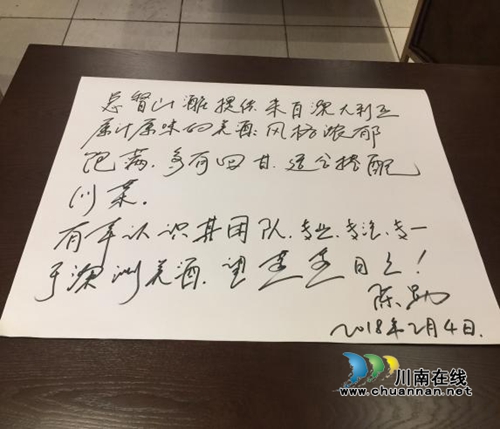 总督山酒提供来自澳大利亚
原汁原味的美酒.风格浓郁
饱满.多有回甘.适合搭配
川菜.
有幸认识其团队.专业.专注.专一
于澳洲美酒.望蒸蒸日上!
陈
2018年2月4日.
川南在线
www.chuannan.net